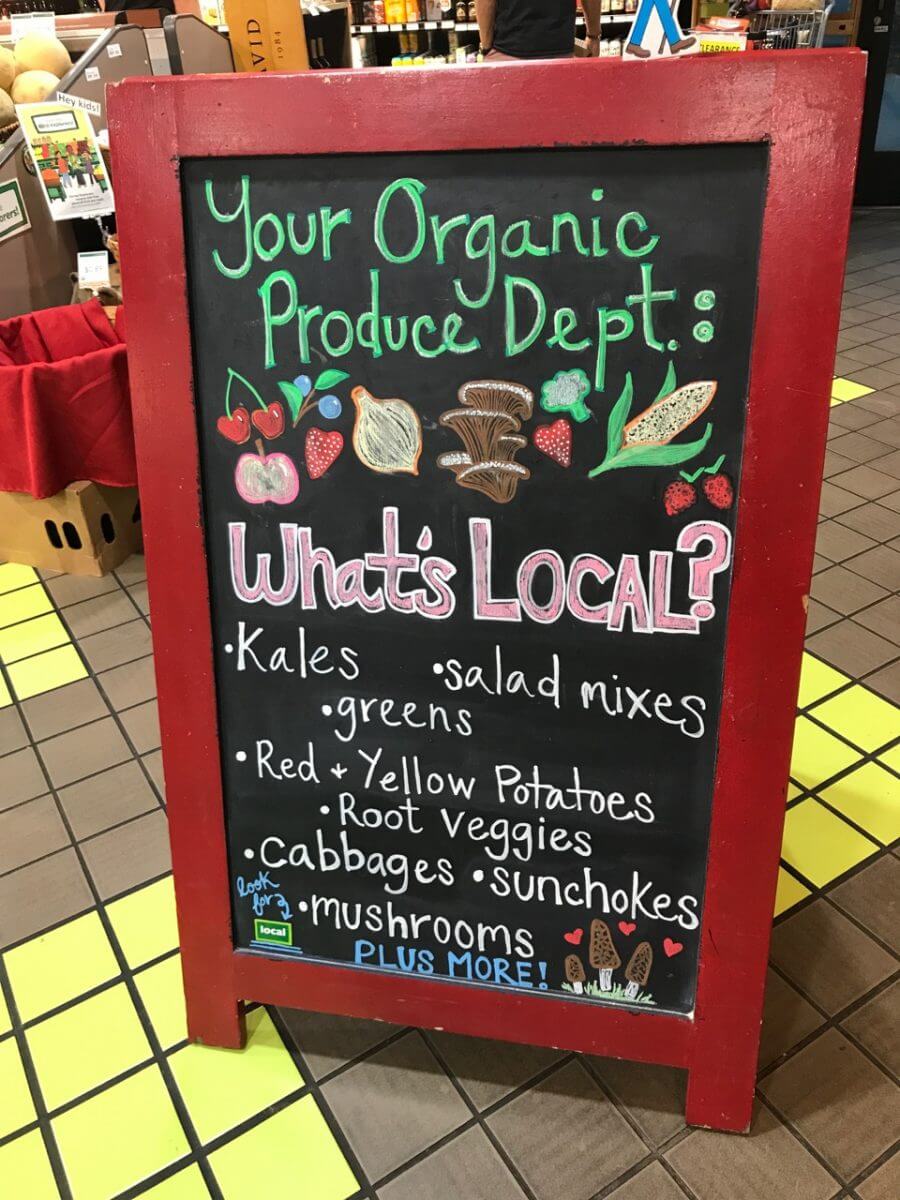 DAVID
1984
CLEARANCE
Hey kids!
Your Organic
Produce Dept.:
What's LOCAL?
•Kales •salad mixes
•greens
•Red + Yellow Potatoes
•Root veggies
•cabbages •sunchokes
look
for
local
•mushrooms
PLUS MORE!